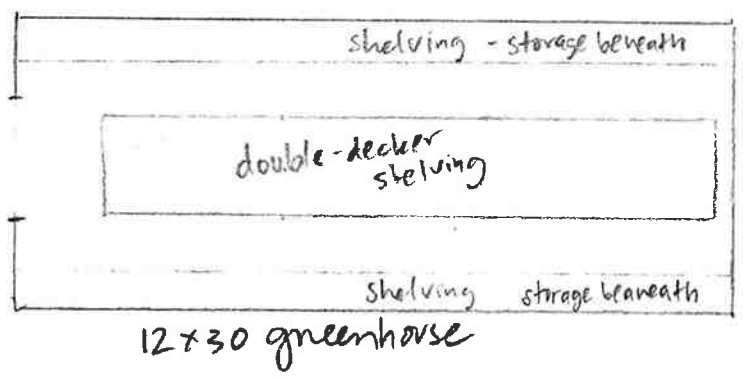 shelving - storage beneath
double-decker
shelving
shelving storage beaneath
12x30 greenhouse